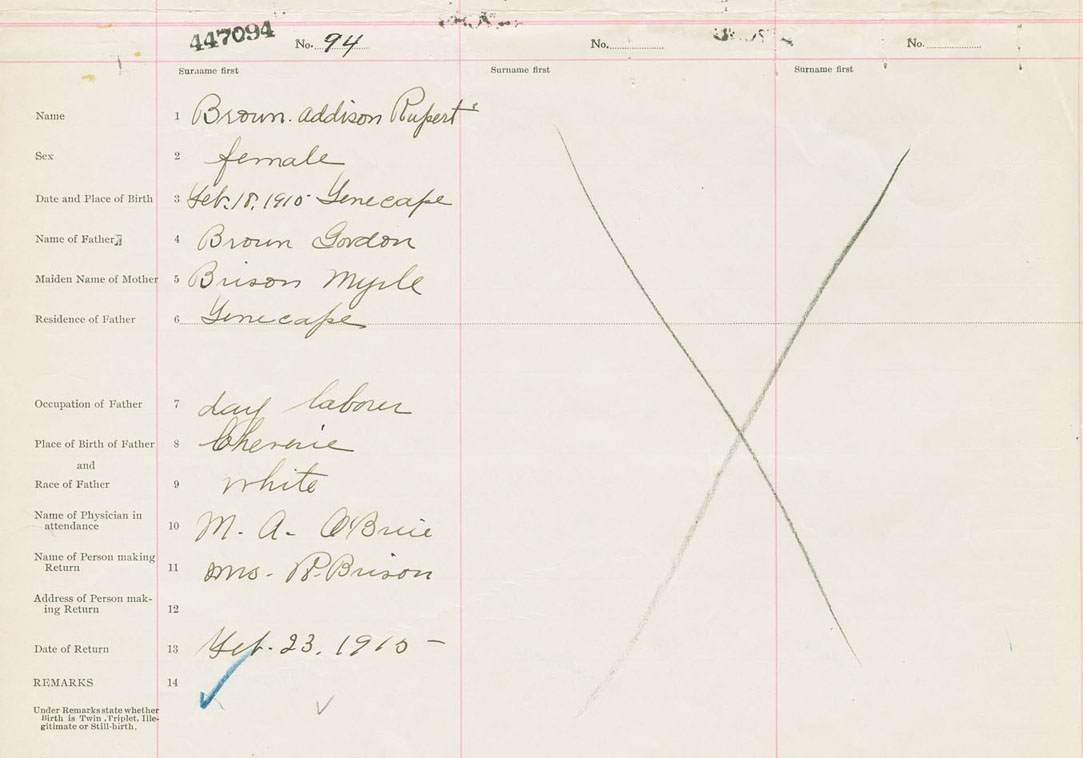 447094 No. 94 No. No.
Surname first Surname first Surname first
Name 1 Brown. Addison Rupert
Sex 2 female
Date and Place of Birth 3 Feb. 18, 1915 Tenecape
Name of Father 4 Brown Gordon
Maiden Name of Mother 5 Brison Myrle
Residence of Father 6 Tenecape
Occupation of Father 7 day laborer
Place of Birth of Father 8 Cheverie
and
Race of Father 9 White
Name of Physician in
attendance 10 M. A. O'Brie
Name of Person making
Return 11 Mrs. R. Brison
Address of Person mak-
ing Return 12
Date of Return 13 Feb. 23, 1915 -
REMARKS 14
Under Remarks state whether
Birth is Twin, Triplet, Ille-
gitimate or Still-birth.